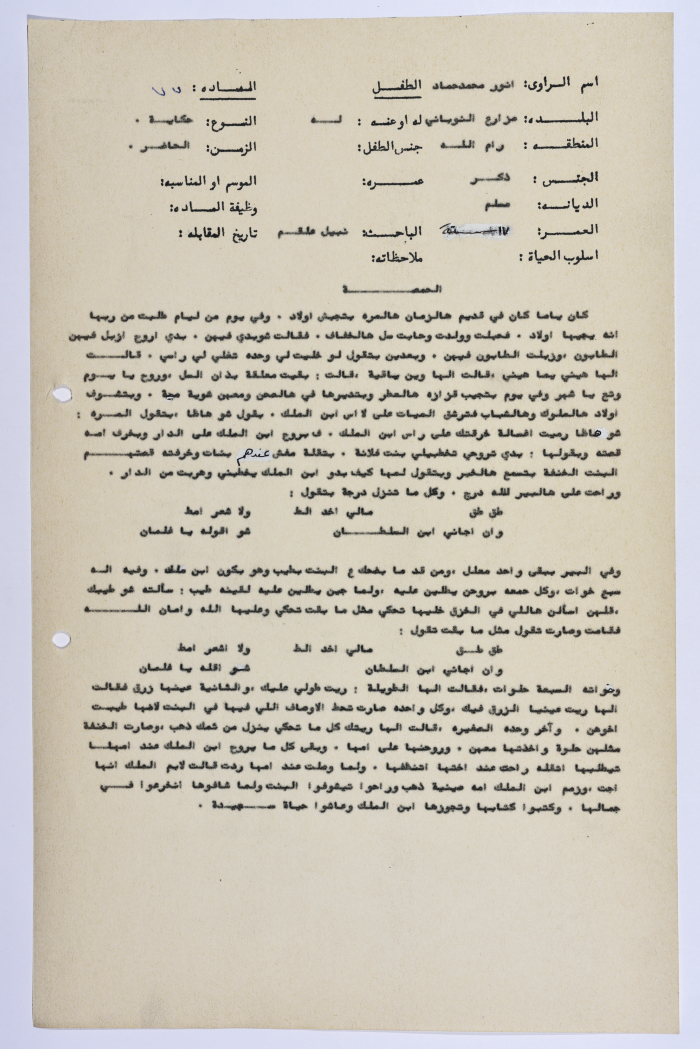 اسم الراوى: انور محمد حماد الطفل الماده: ٧٧
البلده: مزارع النوباني له او عنه: له النوع: حكاية.
المنطقه: رام الله جنس الطفل: الزمن: الحاضر.
الجنس: ذكر عمره: الموسم او المناسبه:
الديانه: مسلم وظيفة الماده:
العمر: ١٧ سنة الباحث: نبيل علقم تاريخ المقابله:
اسلوب الحياة: ملاحظاته:
الحمصة
كان ياما كان في قديم هالزمان هالمره بتجبش اولاد. وفي يوم من ليام طلبت من ربها
انه يجيبها اولاد. فحبلت وولدت وجابت مل هالخفاف. فقالت شوبدي فيهن. بدي اروح ازبل فيهن
الطابون، وزبلت الطابون فيهن. وبعدين بتقول لو خليت لي وحده تفلي لي راسي. قالت
الها هيني يما هيني، قالت الها وين باقية، قالت: بقيت معلقة بذان السل، وروح يا يوم
وتع يا شهر وفي يوم بتجيب قزازه هالعطر وبتديرها في هالصحن ومعهن شوية مية. وبتشوف
اولاد هالملوك وهالشباب فترشق الميات على لاس ابن الملك. بقول شو هاظا، بتقول المره:
شو هاظا رميت اغسالة خرقتك على راس ابن الملك. ف بروح ابن الملك على الدار وبخرف امه
قصته وبقولها: بدي تروحي تخطبيلي بنت فلانة. بتقله مفش عندهم بنات وخرفته قصتهم
البنت الخنفة بتسمع هالخبر وبتقول لمها كيف بدو ابن الملك يخطبني وهربت من الدار.
وراحت على هالبير لله درج. وكل ما تنزل درجة بتقول:
طق طق مالي اخد الط ولا شعر امط
وان اجاني ابن السلطان شو اقوله يا غلمان
وفي البير ببقى واحد معلل، ومن قد ما بضحك ع البنت بطيب وهو بكون ابن ملك. وفيه اله
سبع خوات، وكل جمعه بروحن يطلين عليه، ولما جين يطلين عليه لقينه طيب: سالته شو طيبك
،قلهن اسألن هاللي في الخزق خليها تحكي مثل ما بقت تحكي وعليها الله وامان الله
فقامت وصارت تقول مثل ما بقت تقول:
طق طق مالي اخد الط ولا اشعر امط
وان اجاني ابن السلطان شو اقله يا غلمان
وخواته السبعة حلوات، فقالت الها الطويلة: ريت طولي عليك، والثانية عينها زرق فقالت
الها ريت عينيا الزرق فيك، وكل واحده صارت تحط الاوصاف اللي فيها في البنت لانها طيبت
اخوهن. وآخر وحده الصغيره، قالت الها ريتك كل ما تحكي بنزل من ثمك ذهب، وصارت الخنفة
مثلهن حلوة واخذتها معهن. وروحنها على امها. وبقى كل ما يروح ابن الملك عند امها
تيطلبها اتقله راحت عند اختها اتنظفها. ولما وصلت عند امها ردت قالت لابم الملك انها
اجت، وزمم ابن الملك امه صينية ذهب وراحوا تيشوفوا البنت ولما شافوها انخرعوا في
جمالها. وكتبوا كتابها وتجوزها ابن الملك وعاشوا حياة سجيدة.